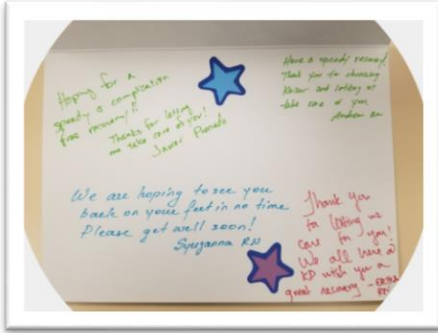 Hoping for a
speedy & complication
free recovery!!
Thanks for letting
me take care of you!
Have a speedy recovery!
Thank you for choosing
Kaiser and letting us
take care of you
RN
We are hoping to see you
back on your feet in no time
Please get well soon!
Syuzanna RN
Thank you
for letting me
care for you!
We all here @
KP wish you a
great recovery -
RN